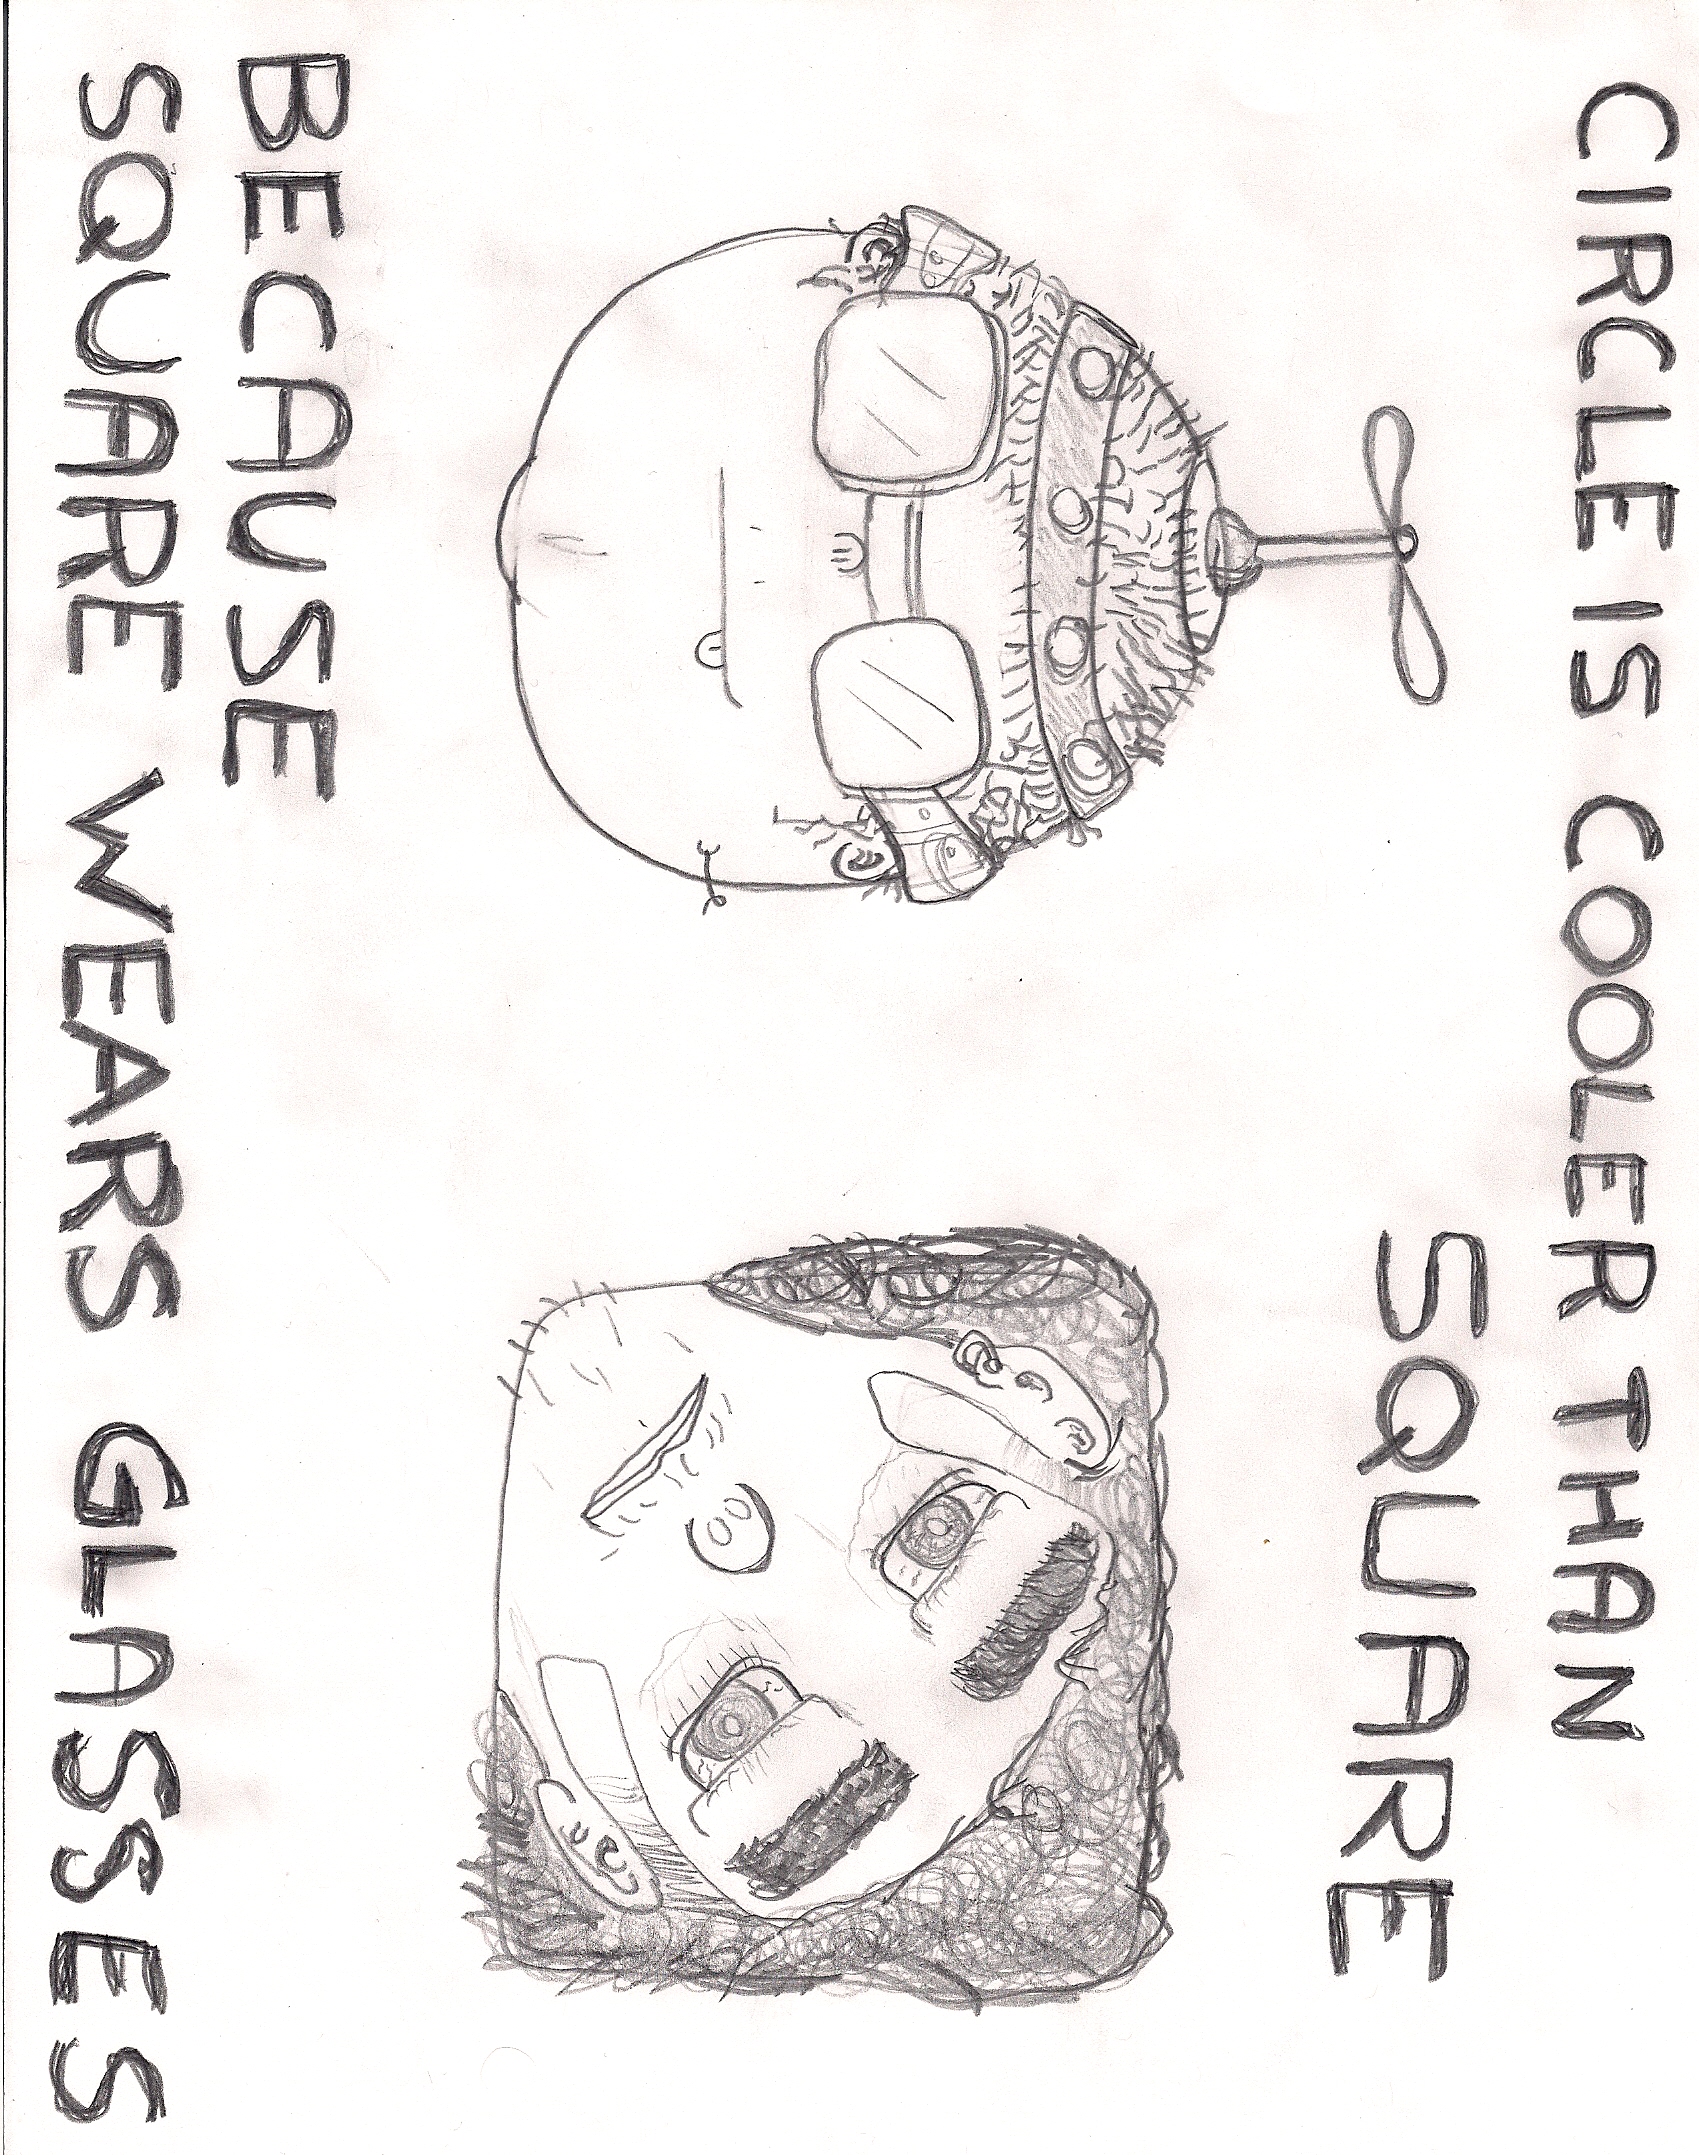 CIRCLE IS COOLER THAN
SQUARE
BECAUSE
SQUARE WEARS GLASSES